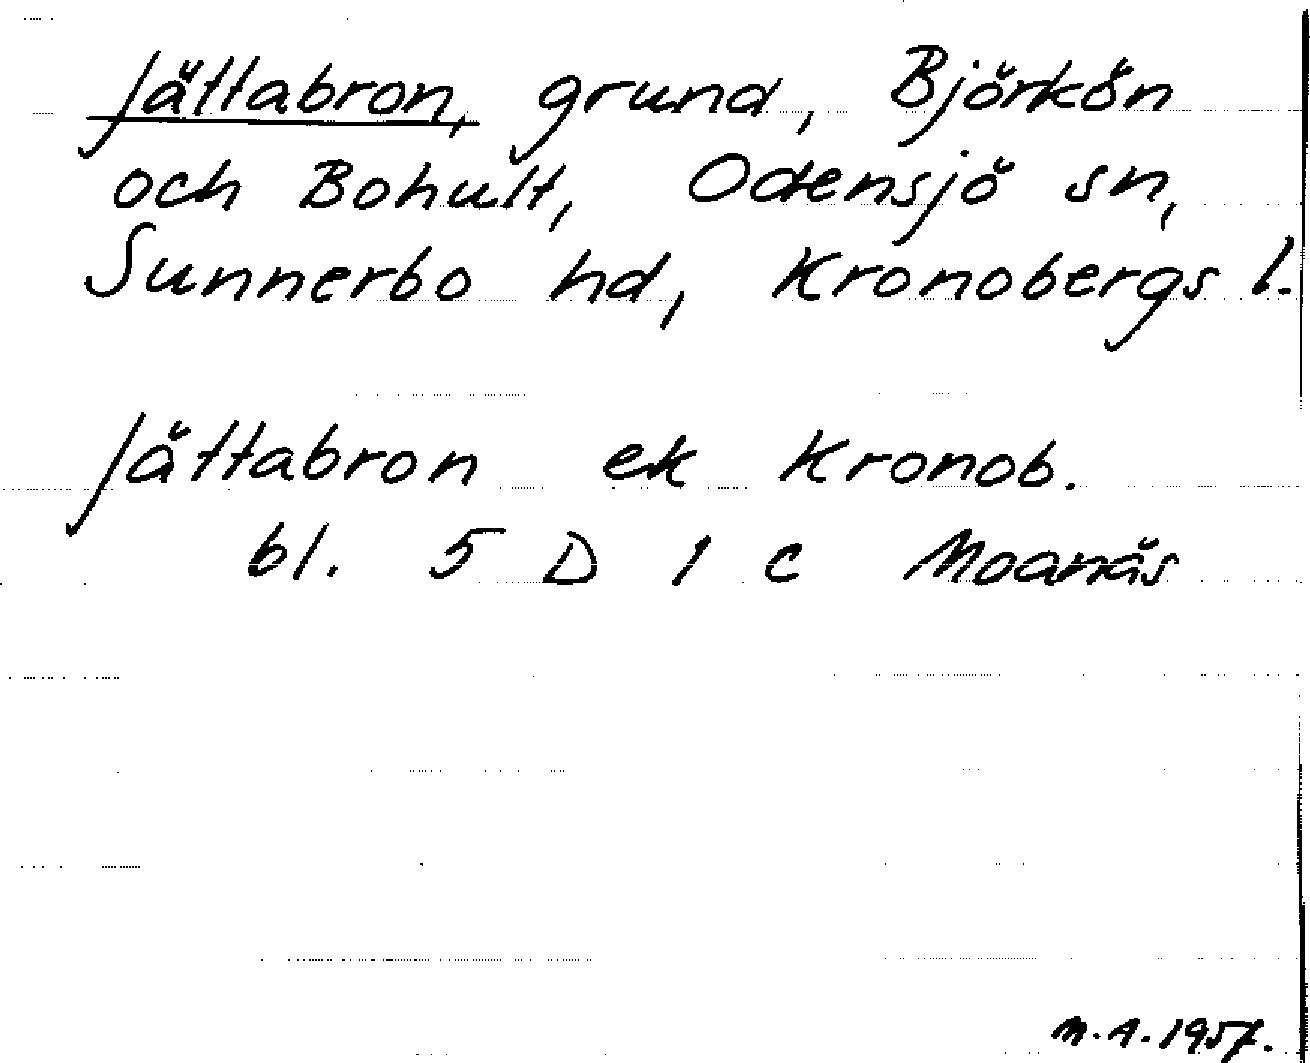 Jättabron, grund, Björkön
och Bohult, Odensjö sn,
Sunnerbo hd, Kronobergs l.
Jättabron ek Kronob.
bl. 5 D 1 c Moanäs
M.A. 1957.